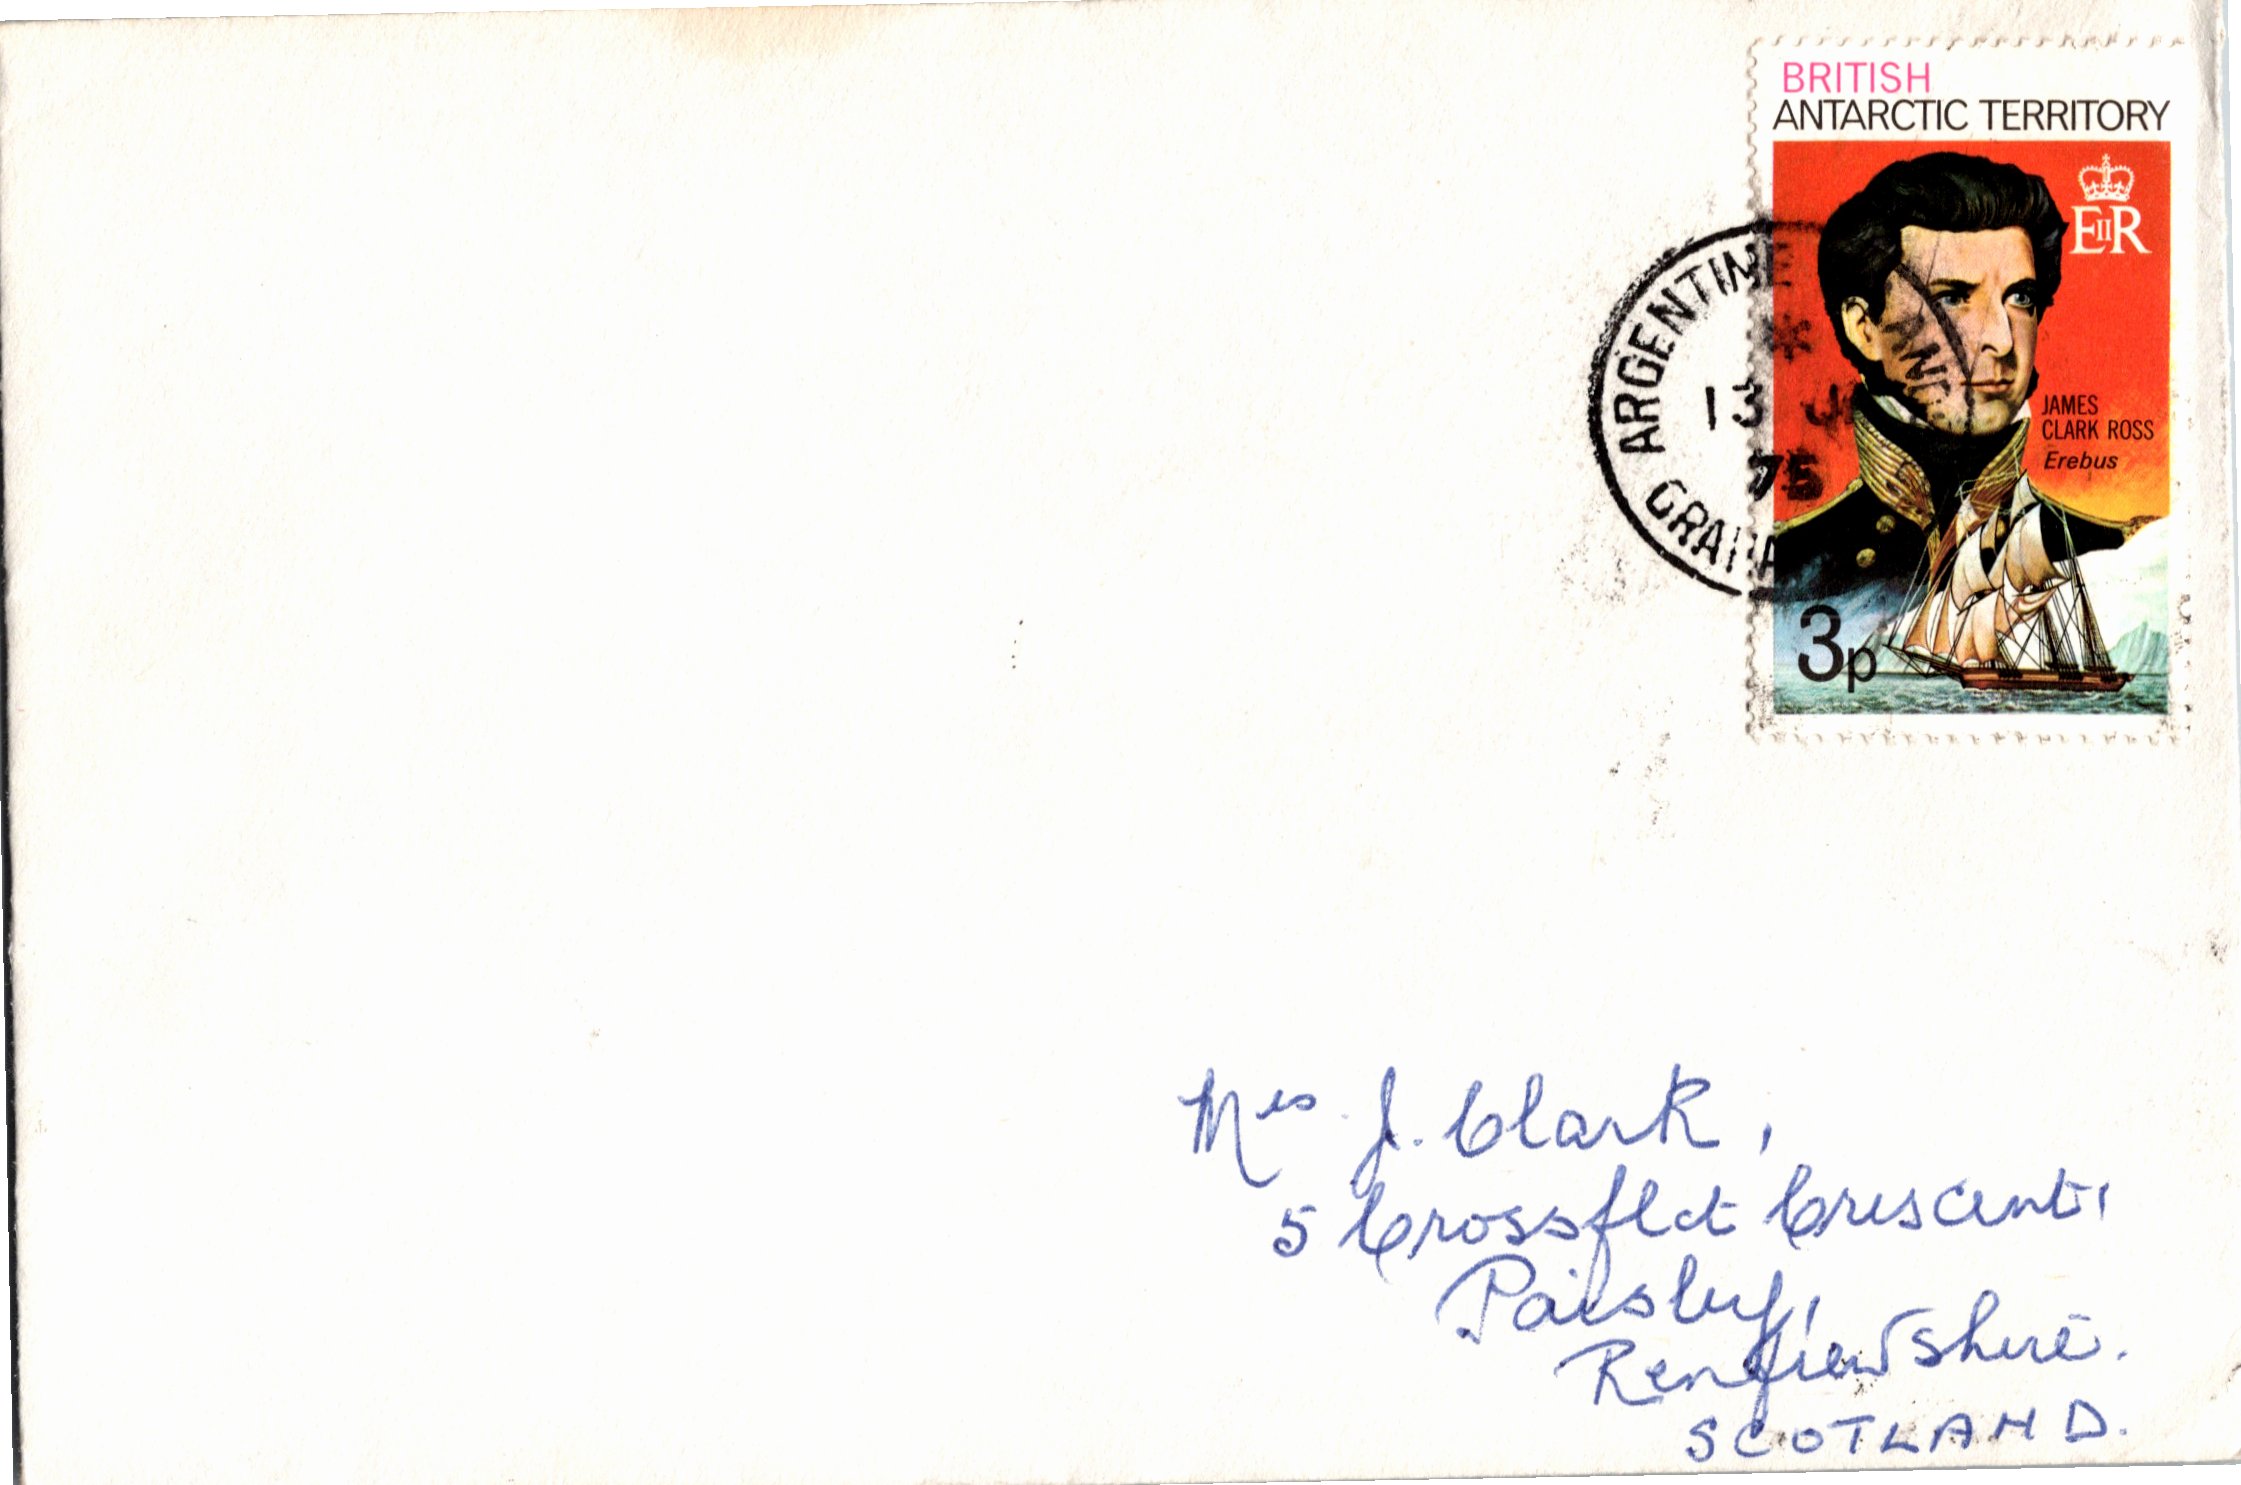 BRITISH
ANTARCTIC TERRITORY
EIIR
JAMES
CLARK ROSS
Erebus
3p
ARGENTINE
13
75
Mrs. J. Clark,
5 Crossflat Crescent,
Paisley,
Renfrewshire.
SCOTLAND.